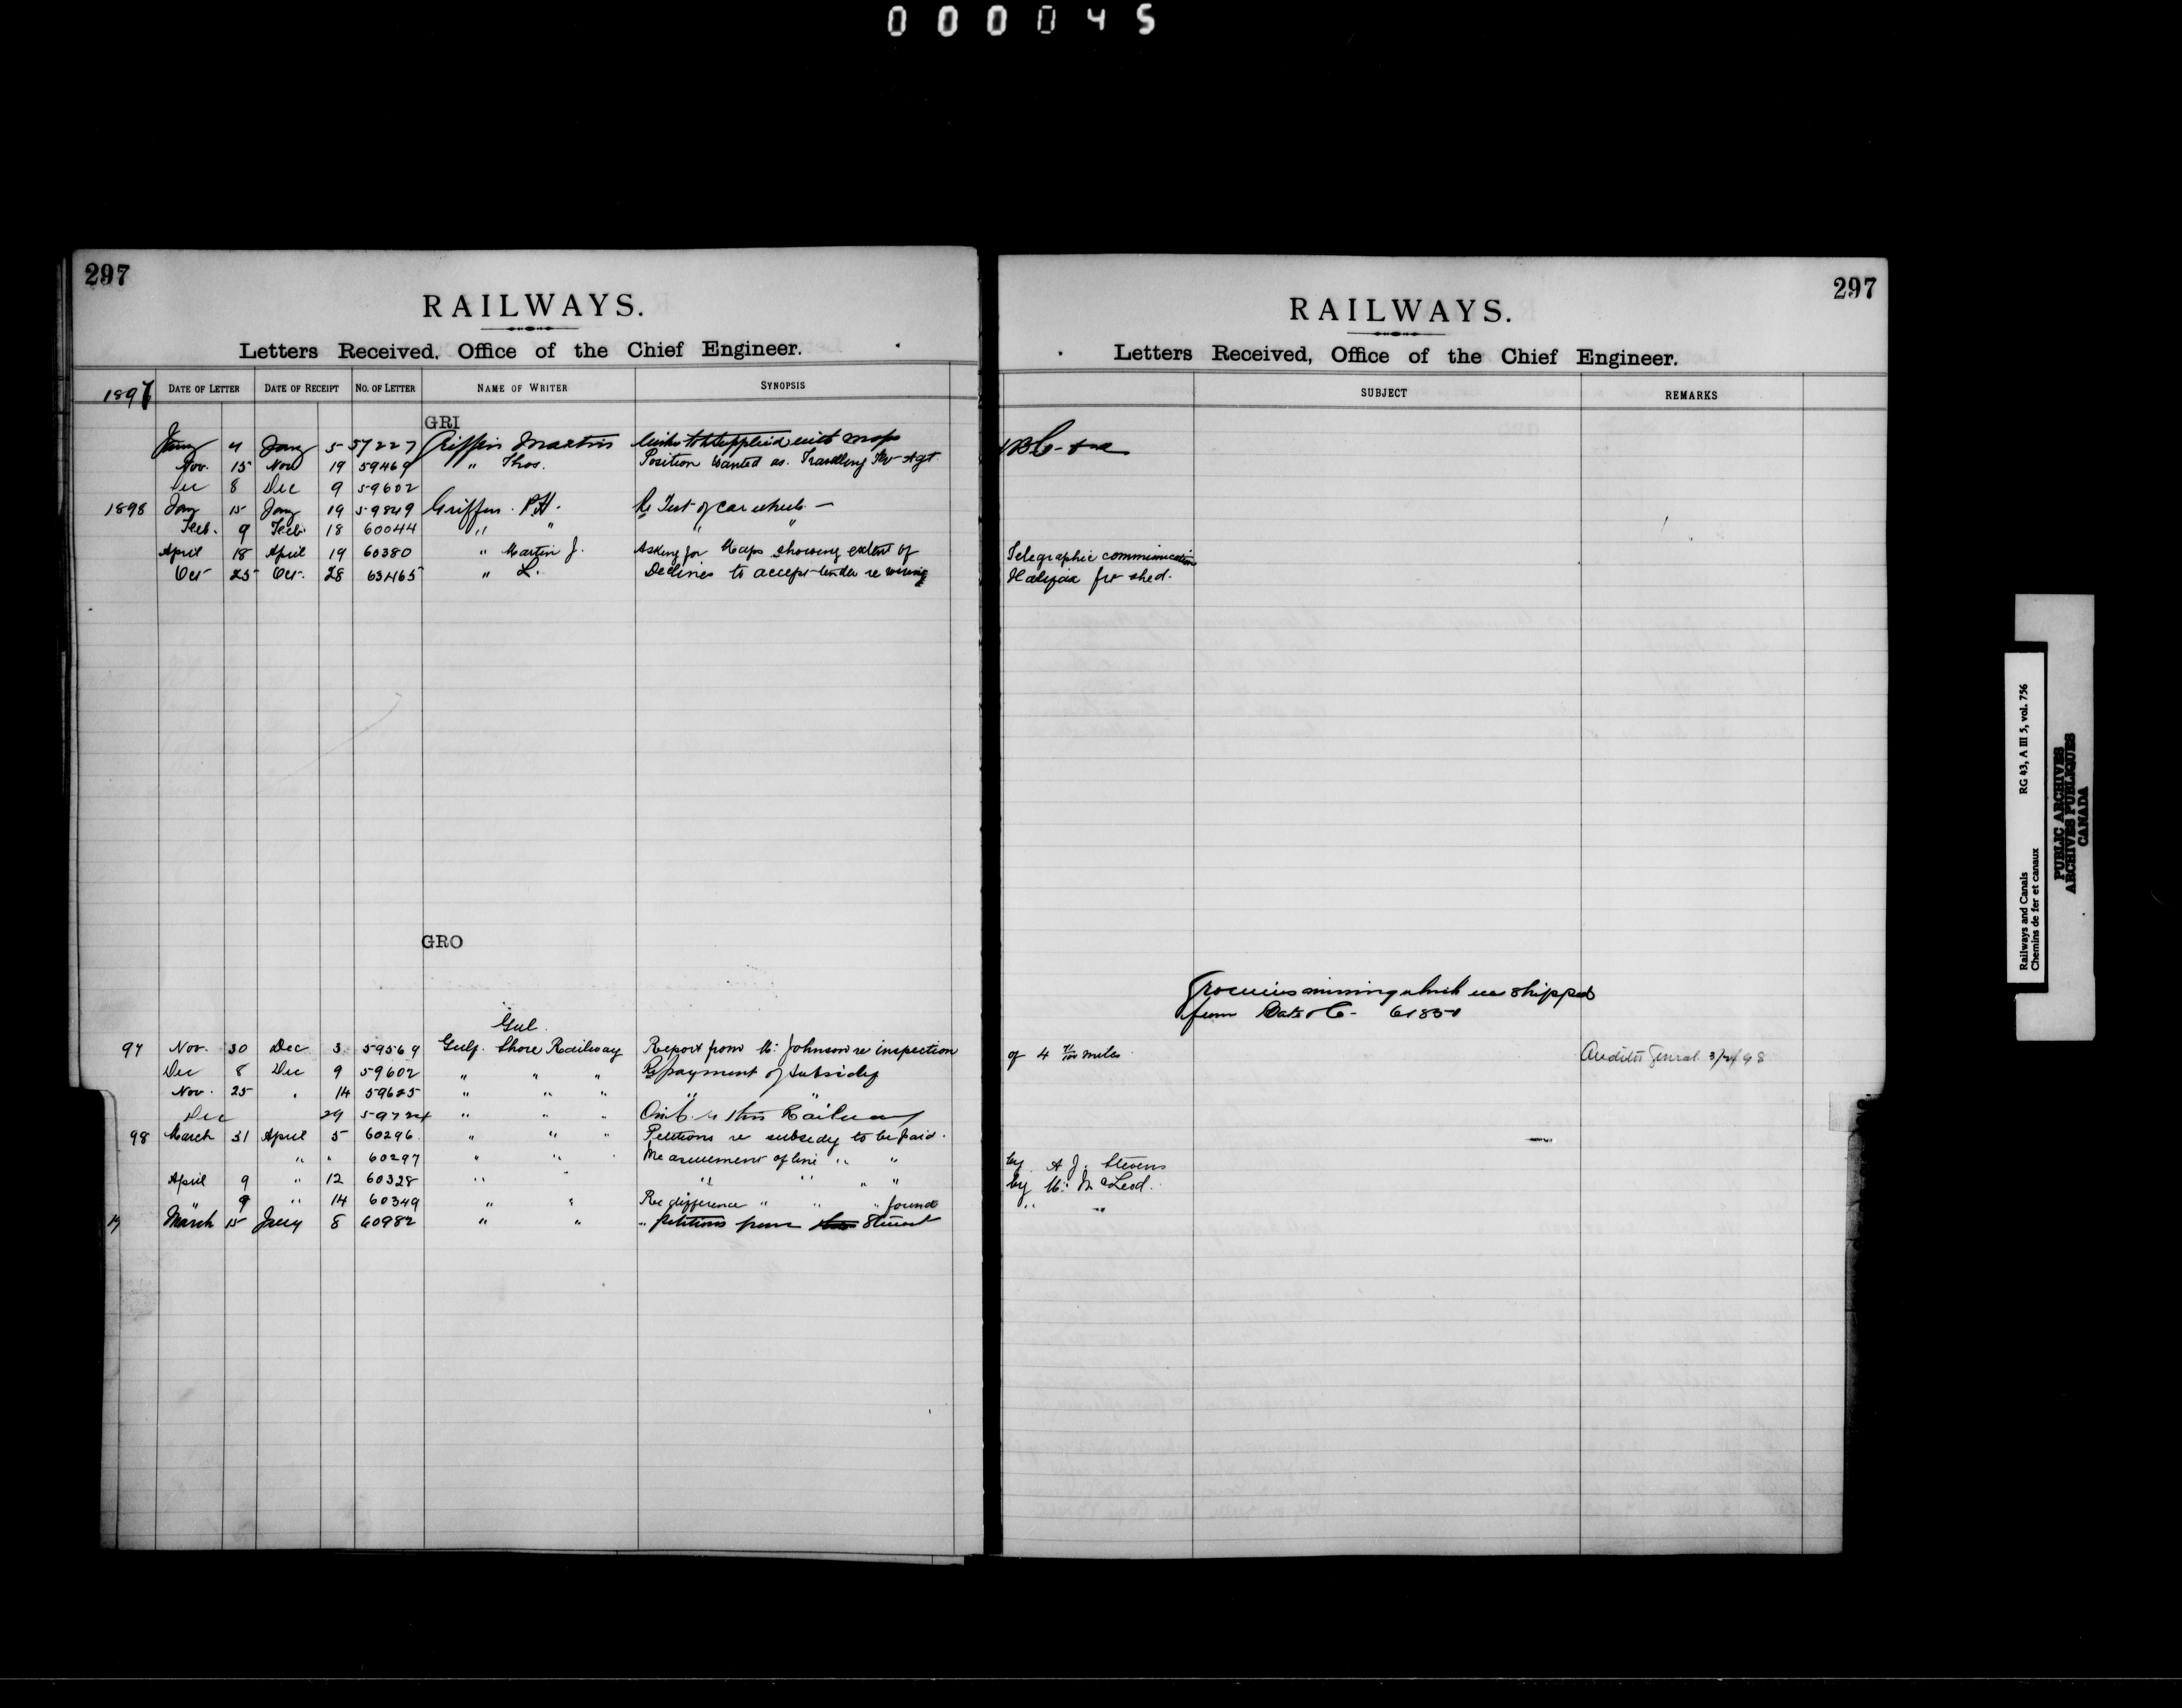 000045
297
RAILWAYS.
Letters Received, Office of the Chief Engineer.
1897 DATE OF LETTER DATE OF RECEIPT NO. OF LETTER NAME OF WRITER SYNOPSIS
GRI
Jany 4 Jany 5 57227 Griffin Martin supplied with maps
Nov. 15 Nov 19 59469 " Thos. Position wanted as Travelling Agt
Dec 8 Dec 9 59602
1898 Jany 15 Jany 19 59849 Griffin P.H. Re Test of car wheels —
Feeb. 9 Feeb. 18 60044 " " " "
April 18 April 19 60380 " Martin J. Asking for Maps showing extent of
Oct 25 Oct. 28 63465 " L. Declines to accept tender re wiring
GRO
Gul.
97 Nov. 30 Dec 3 59569 Gulf Shore Railway Report from Mr Johnson re inspection
Dec 8 Dec 9 59602 " " " Re payment of subsidy
Nov. 25 " 14 59625 " " " " "
Dec 29 59724 " " " this Railway
98 March 31 April 5 60296 " " " Petitions re subsidy to be paid.
" " 60297 " " " Measurement of line " "
April 9 " 12 60328 " " " " " "
" 9 " 14 60349 " " Re difference " " " found
March 15 Jany 8 60982 " " " petitions from Stewart
297
RAILWAYS.
Letters Received, Office of the Chief Engineer.
SUBJECT REMARKS
Telegraphic communication
Halifax frt shed.
Groceries missing which were shipped
from 61850
of 4 miles Auditor General 98
by A. J. Stevens
by Mr McLeod.
" "
Railways and Canals RG 43, A III 5, vol. 756
Chemins de fer et canaux
PUBLIC ARCHIVES
ARCHIVES PUBLIQUES
CANADA